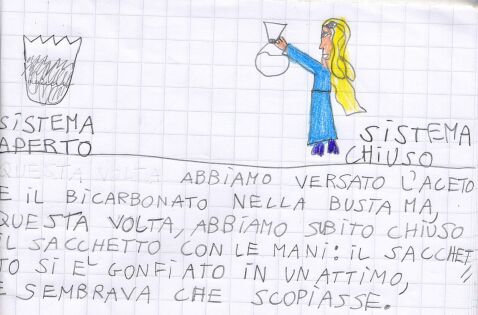 SISTEMA
APERTO
SISTEMA
CHIUSO
QUESTA VOLTA ABBIAMO VERSATO L'ACETO
E IL BICARBONATO NELLA BUSTA MA,
QUESTA VOLTA, ABBIAMO SUBITO CHIUSO
IL SACCHETTO CON LE MANI: IL SACCHET//
TO SI E' GONFIATO IN UN ATTIMO,
E SEMBRAVA CHE SCOPIASSE.